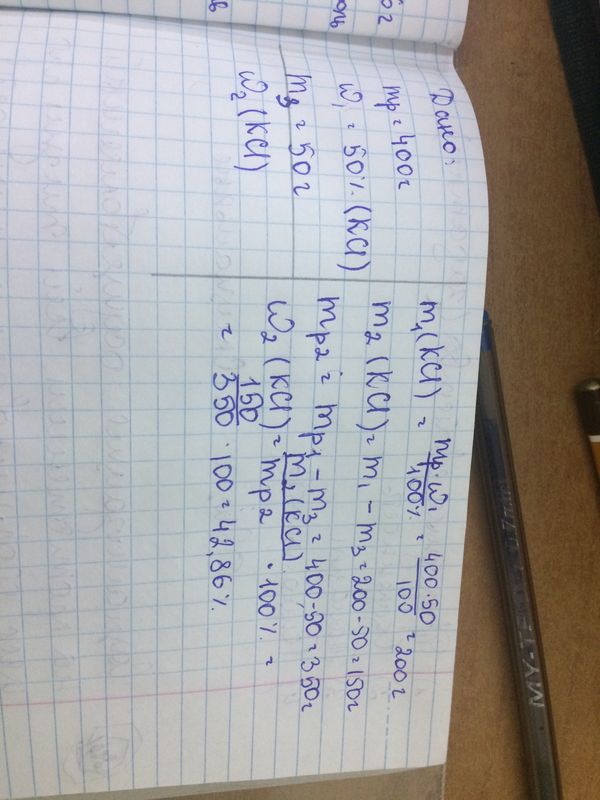 Дано:
mр = 400г
ω₁ = 50% (KCl)
m₃ = 50г
ω₂ (KCl)
m₁(KCl) = mр·ω₁/100% = 400·50/100 = 200г
m₂(KCl) = m₁ - m₃ = 200-50=150г
mр₂ = mр₁ - m₃ = 400-50=350г
ω₂ (KCl) = m₂(KCl)/mр₂ · 100% =
= 150/350 · 100 = 42,86%